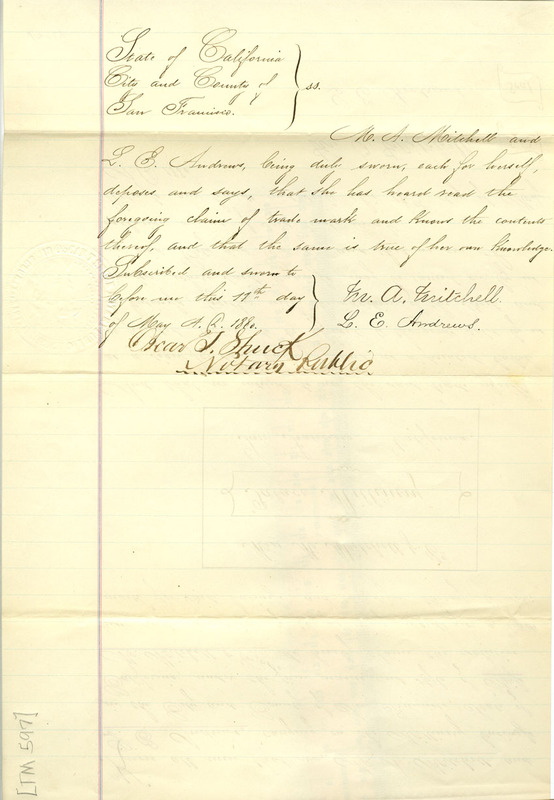 State of California
City and County of } ss.
San Francisco.
M. A. Mitchell and
L. E. Andrews, being duly sworn, each for herself,
deposes and says, that she has heard read the
foregoing claim of trade mark and knows the contents
thereof, and that the same is true of her own knowledge.
Subscribed and sworn to
before me this 11th day
of May A.D. 1880.
M. A. Mitchell.
L. E. Andrews.
Oscar T. Shuck
Notary Public
[TM 597]